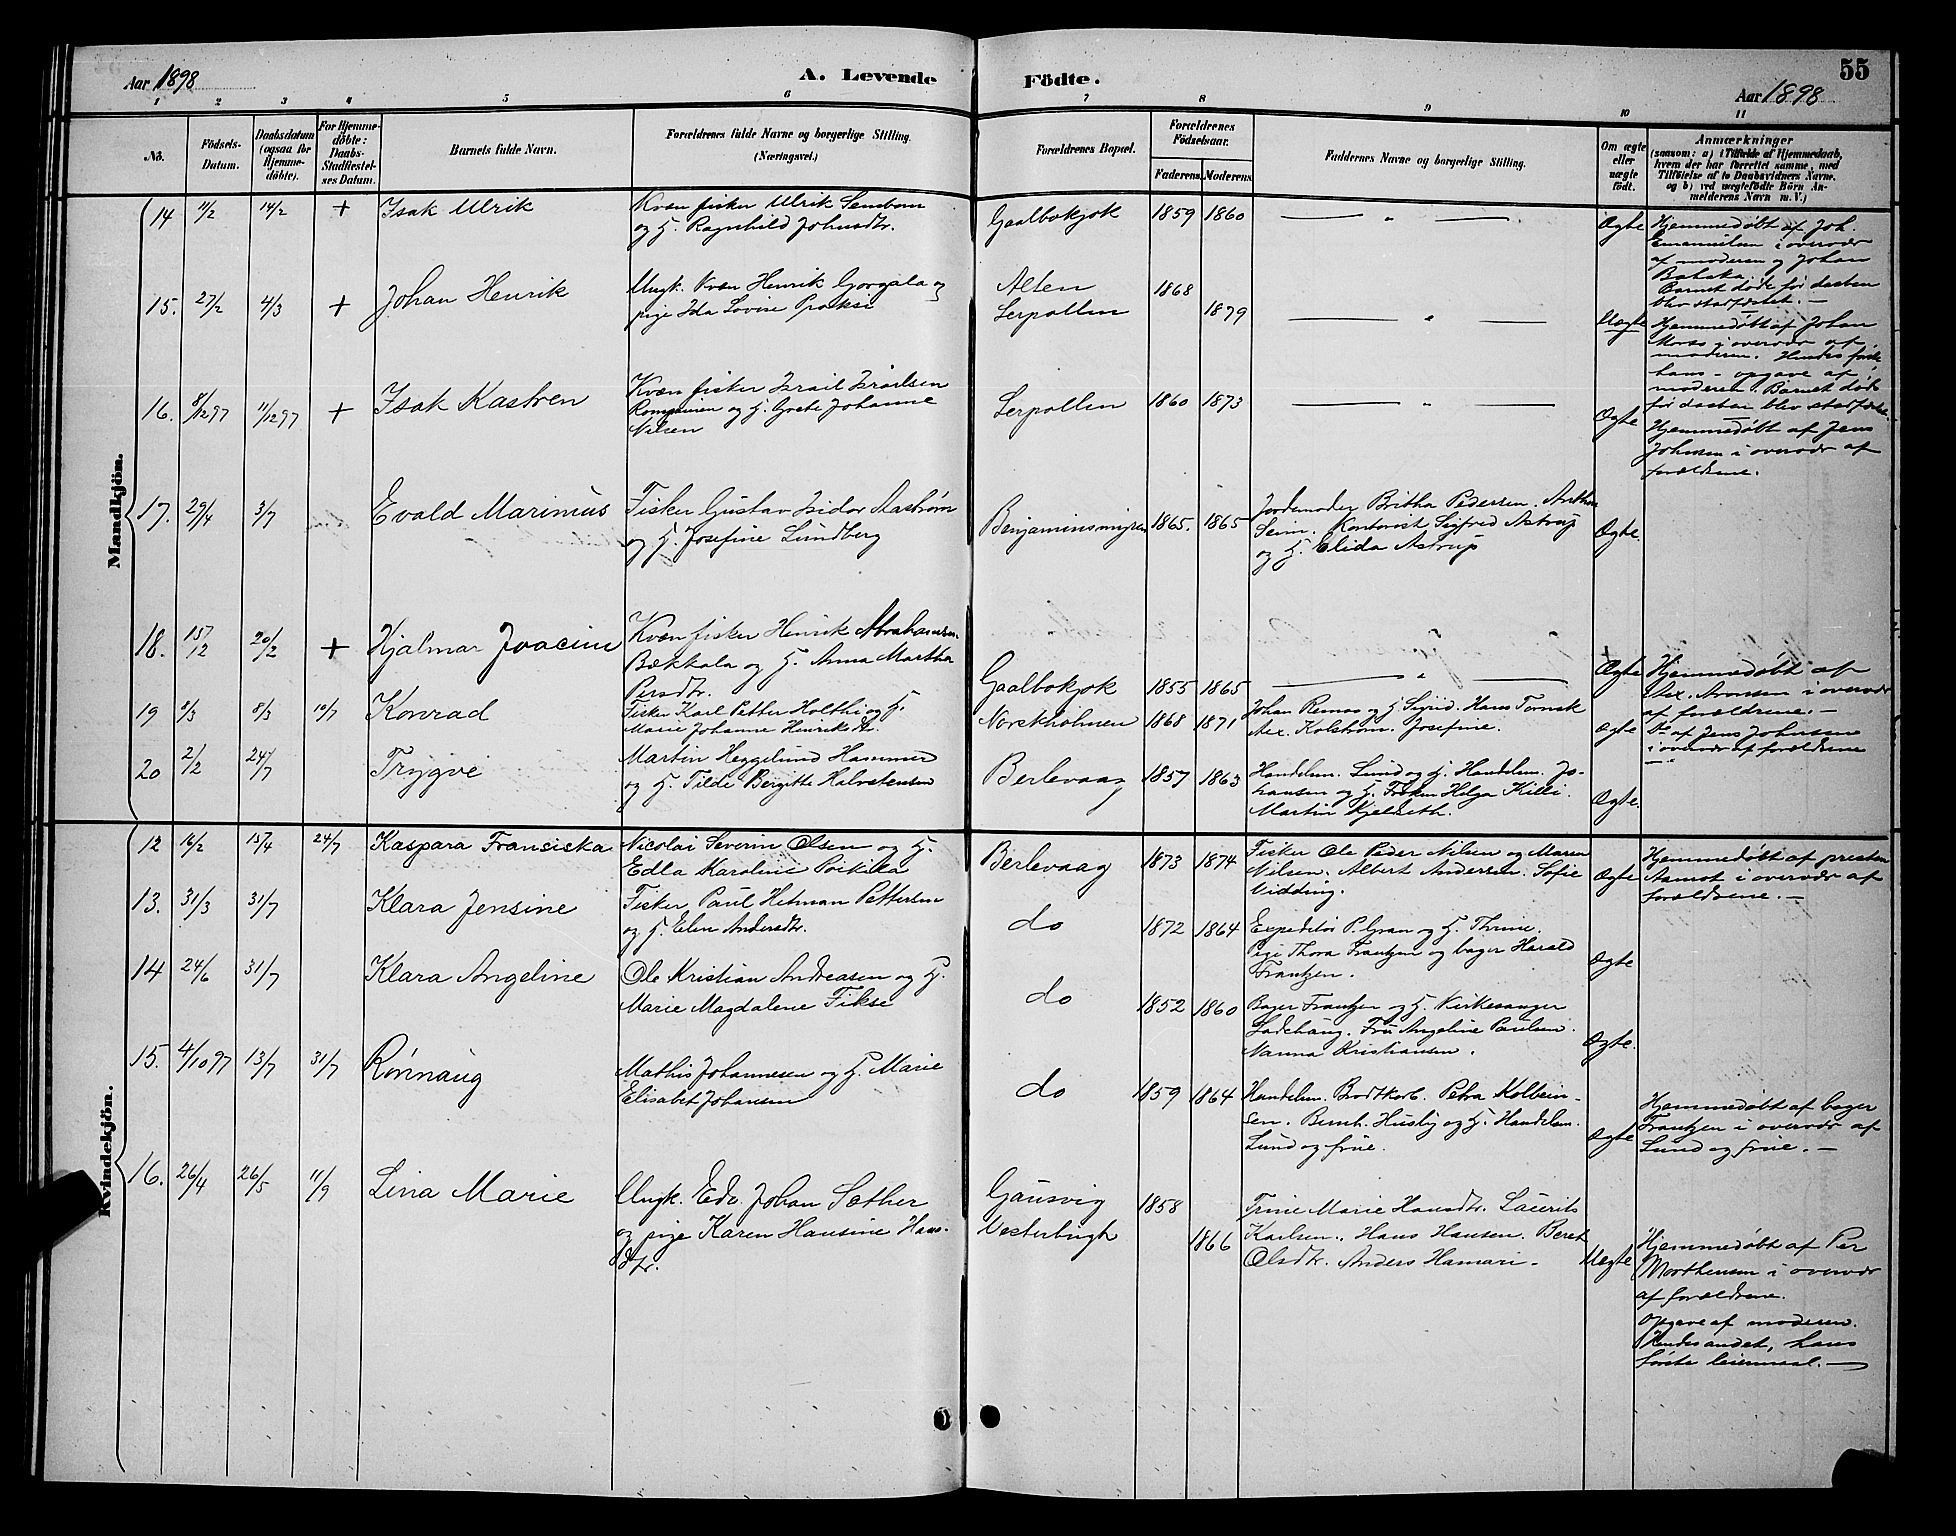 Aar 1898
A. Levende
Födte.
55
Aar 1898
1 2 3 4 5 6 7 8 9 10 11
Nö.
Födsels-
Datum.
Daabsdatum
(ogsaa for
Hjemme-
döbte).
For Hjemme-
döbte:
Daabs-
Stadfæstel-
ses Datum.
Barnets fulde Navn.
Forældrenes fulde Navne og borgerlige Stilling.
(Næringsvei.)
Forældrenes Bopæl.
Forældrenes
Födselsaar.
Faderens. Moderens.
Faddernes Navne og borgerlige Stilling.
Om ægte
eller
uægte
födt.
Anmærkninger
(saasom: a) i Tilfælde af Hjemmedaab,
hvem der har forrettet samme, med
Tilföielse af to Daabsvidners Navne,
og b) ved uægtefödte Börn An-
melderens Navn m. V.)
Mandkjön.
14 11/2 14/2 + Isak Ulrik
Kvæn fisker Ulrik
og h. Ragnhild Johnsdtr.
Gaalbokjok 1859 1860 — " — Ægte
Hjemmedøbt af Joh.
Emanuelsen i overvær
af moderen og Johan
Barnet døde før daaben
blev stadfæstet. —
15. 27/2 4/3 + Johan Henrik
Ungk. Kvæn Henrik Gorgala og
pige Ida Lovise
Alten 1868
Serpollen 1879 — " — Uægte
Hjemmedøbt af Johan
i overvær af
moderen. Hendes første
hans – opgave af
moderen. Barnet døde
før daaben blev stadfæstet.
16. 8/12 97 11/12 97 + Isak Kastren
Kvæn fisker Israil Israilsen
og h. Grete Johanne
Nilsen
Serpollen 1860 1873 — " — Ægte
Hjemmedøbt af Jens
Johnsen i overvær af
forældrene.
17. 29/4 3/7 Evald Marinius
Fisker Gustav Isidor Aastrøm
og h. Josefine Lundberg
1865. 1865
Jordemoder Britha Pedersen.
Seim. Kontorist Sigfred Astrup
og h. Elida Astrup
Ægte.
18. 15/12 20/2 + Hjalmar Joacim
Kvæn fisker Henrik Abrahamsen
Bækkala og h. Anna Martha
Persdtr.
Gaalbokjok 1855 1865 — " — Ægte
Hjemmedøbt af
Alex. Arnesen i overvær
af forældrene. —
19 9/3 8/3 10/7 Konrad
Fisker Karl Petter Holthi og h.
Marie Johanne Henriksdtr.
Norskholmen 1868 1871
Johan og h. Sigrid. Hans Tornsk
Alex. Kolstrøm. Josefine.
Ægte
Do af Jens Johnsen
i overvær af forældrene
— " —
20 2/12 24/7 Trygve
Martin Heggelund Hammer
og h. Tilde Bergitte Halvstensen
Berlevaag 1857 1863
Handelsm. Lund og h. Handelsm. Jo-
hansen og h. Frøken Helga Killi.
Martin Kjeldseth.
Ægte.
Kvindekjön.
12 16/2 15/4 24/7 Kaspara Fransiska
Nicolai Severin Olsen og h.
Edla Karoline Poikila
Berlevaag 1873 1874
Fisker Ole Peder Nilsen og Maren
Nilsen. Albert Andersen. Sofie
Vidding.
Ægte
Hjemmedøbt af presten
Aamot i overvær af
forældrene. —
13. 31/3 31/7 Klara Jensine
Fisker Paul Hitman Pettersen
og h. Elen Andersdtr.
do 1872 1864
Expeditør P. Gran og h. Thrine.
Pige Thora Frantzen og bager Harald
Frantzen.
Ægte
14 24/6 31/7 Klara Angeline
Ole Kristian Andreasen og h.
Marie Magdalene Fikse
do 1852 1860
Bager Frantzen og h. Kirkesanger
Ladehaug. Fru Angeline Paulsen.
Nanna Kristiansen.
Ægte.
15. 4/10 97 13/7 31/7 Rønnaug
Mathis Johannesen og h. Marie
Elisabet Johansen
do 1859 1864
Handelsm. Brodtkorb. Petra Kolbein-
sen. Bernh. Husby og h. Handelsm.
Lund og frue.
Ægte
Hjemmedøbt af bager
Frantzen i overvær af
Lund og frue. —
16. 26/4 26/5 11/9 Lina Marie
Ungk. Edv. Johan Sæther
og pige Karen Hansine Hans-
dtr.
Gausvig 1858
1866
Trine Marie Hansdtr. Laurits
Karlsen. Hans Hansen. Beret
Olsdtr. Anders Hamari.
Uægte
Hjemmedøbt af Per
Morthensen i overvær
af forældrene.
Opgave af moderen.
Hendes andet, hans
første leiermaal. —